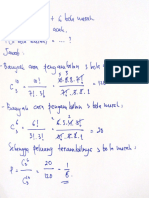 + 6 bola merah
Jawab :
- Banyak cara pengambilan 3 bola
C₃¹⁰ = 10! / 7! . 3! = 10.9.8.7! / 7! 3.2.1 = 120
- Banyak cara pengambilan 3 bola m
C₃⁶ = 6! / 3! . 3! = 6.5.4.3! / 3! 3.2.1 = 20
Sehingga peluang terambilnya 3 bola merah :
P = C₃⁶ / C₃¹⁰ = 20 / 120 = 1 / 6